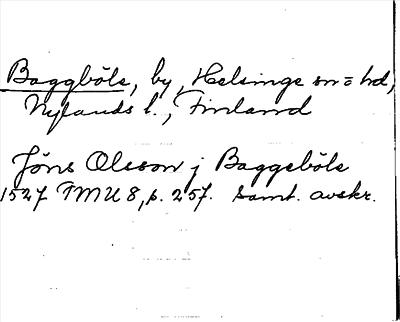 Baggböle, by, Helsinge sn o hd,
Nylands l., Finland
Jöns Olsson j Baggeböle
1527 FMU 8, s. 257. Samt. avskr.